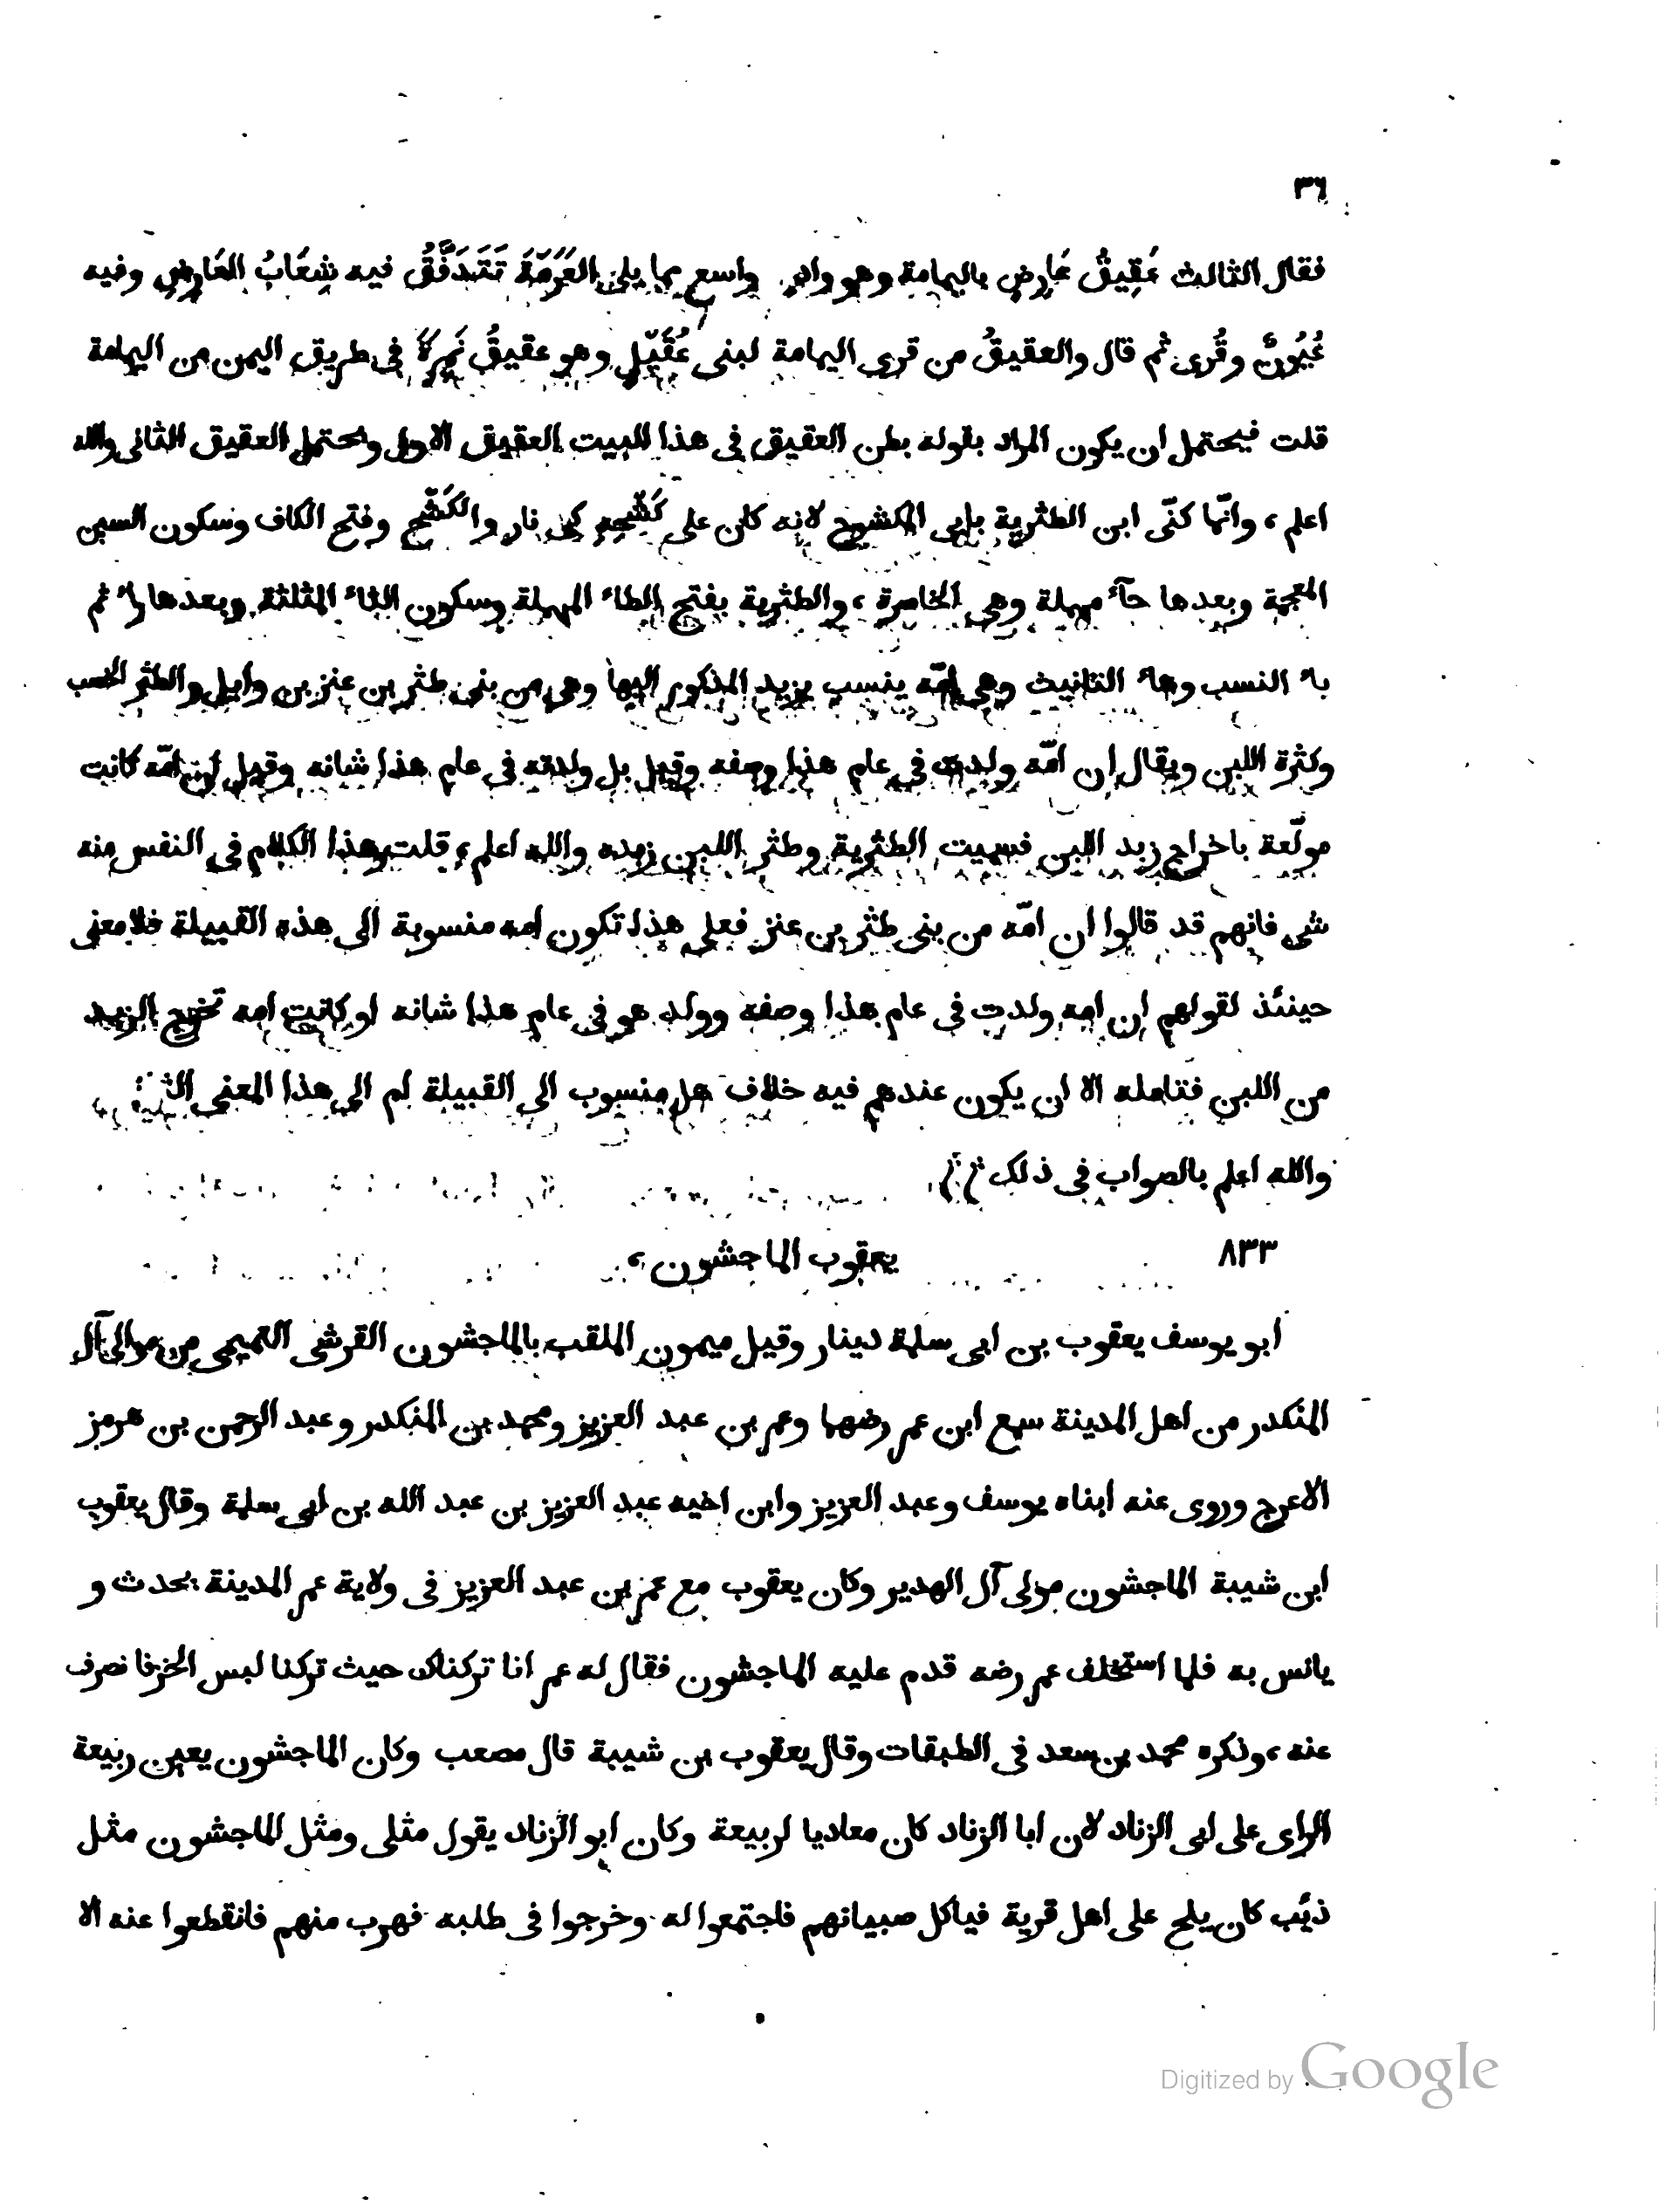 ٣٦
فقال الثالث عَقِيقُ عَارِضٍ باليمامة وهو واد واسع مما يلى العَرَمَةَ تَتَدَفَّقُ فيه شِعَابُ العَارِضِ وفيه
عُيُونٌ وقُرى ثم قال والعقيقُ من قرى اليمامة لبنى عُقَيْلٍ وهو عقيقُ نَمِرَةَ فى طريق اليمن من اليمامة
قلت فيحتمل ان يكون المراد بقوله بطن العقيق فى هذا البيت العقيق الاول ويحتمل العقيق الثانى والله
اعلم، وانّما كنّى ابن الطثرية بابى المكشوح لانه كان على كَشْحِهِ كى نار والكَشْحُ وفتح الكاف وسكون السين
المعجمة وبعدها حآء مهملة وهى الخاصرة، والطثرية بفتح الطاء المهملة وسكون الثاء المثلثة وبعدها راء ثم
ياء النسب وهاء التانيث وهى امّه ينسب يزيد المذكور اليها وهى من بنى طثر بن عنز بن وايل والطثر الخصب
وكثرة اللبن ويقال ان امّه ولدت فى عام هذا وصفه وقيل بل ولدته فى عام هذا شانه وقيل ان امّه كانت
مولّعة باخراج زبد اللبن فسميت الطثرية وطثر اللبن زبده والله اعلم، قلت وهذا الكلام فى النفس منه
شى فانهم قد قالوا ان امّه من بنى طثر بن عنز فعلى هذا تكون امه منسوبة الى هذه القبيلة فلا معنى
حينئذ لقولهم ان امه ولدت فى عام هذا وصفه وولد هو فى عام هذا شانه او كانت امه تخرج الزبد
من اللبن فتامله الا ان يكون عندهم فيه خلاف هل منسوب الى القبيلة ام الى هذا المعنى
والله اعلم بالصواب فى ذلك
٨٣٣ يعقوب الماجشون،
ابو يوسف يعقوب بن ابى سلمة دينار وقيل ميمون الملقب بالماجشون القرشى التميمى من موالى آل
المنكدر من اهل المدينة سمع ابن عمر رضهما وعمر بن عبد العزيز ومحمد بن المنكدر وعبد الرحمن بن هرمز
الاعرج وروى عنه ابناه يوسف وعبد العزيز وابن اخيه عبد العزيز بن عبد الله بن ابى سلمة وقال يعقوب
ابن شيبة الماجشون مولى آل الهدير وكان يعقوب مع عمر بن عبد العزيز فى ولاية عمر المدينة يحدث و
يانس به فلما استخلف عمر رضه قدم عليه الماجشون فقال له عمر انا تركناك حيث تركنا لبس الخز فانصرف
عنه، وذكره محمد بن سعد فى الطبقات وقال يعقوب بن شيبة قال مصعب وكان الماجشون يعين ربيعة
الراى على ابى الزناد لان ابا الزناد كان معاديا لربيعة وكان ابو الزناد يقول مثلى ومثل الماجشون مثل
ذئب كان يلح على اهل قرية فياكل صبيانهم فاجتمعوا له وخرجوا فى طلبه فهرب منهم فانقطعوا عنه الا
Digitized by Google